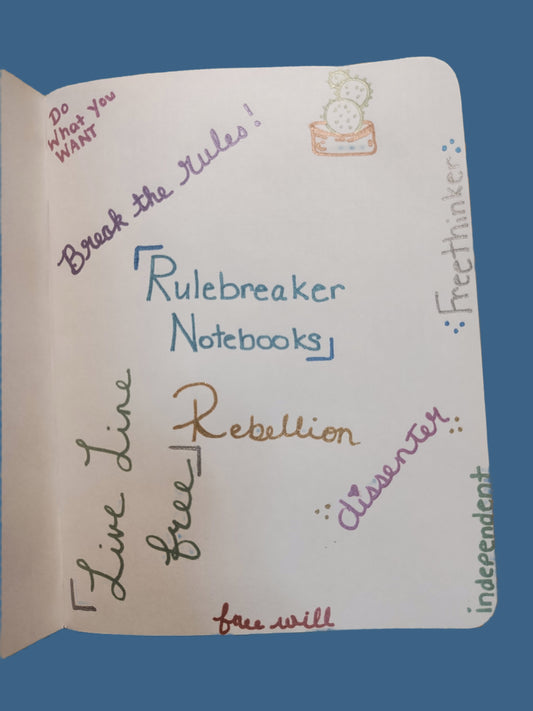 Do
What You
WANT
Break the rules!
「Rulebreaker
Notebooks」
Freethinker
Rebellion
「Live Line
free」
dissenter
independent
free will